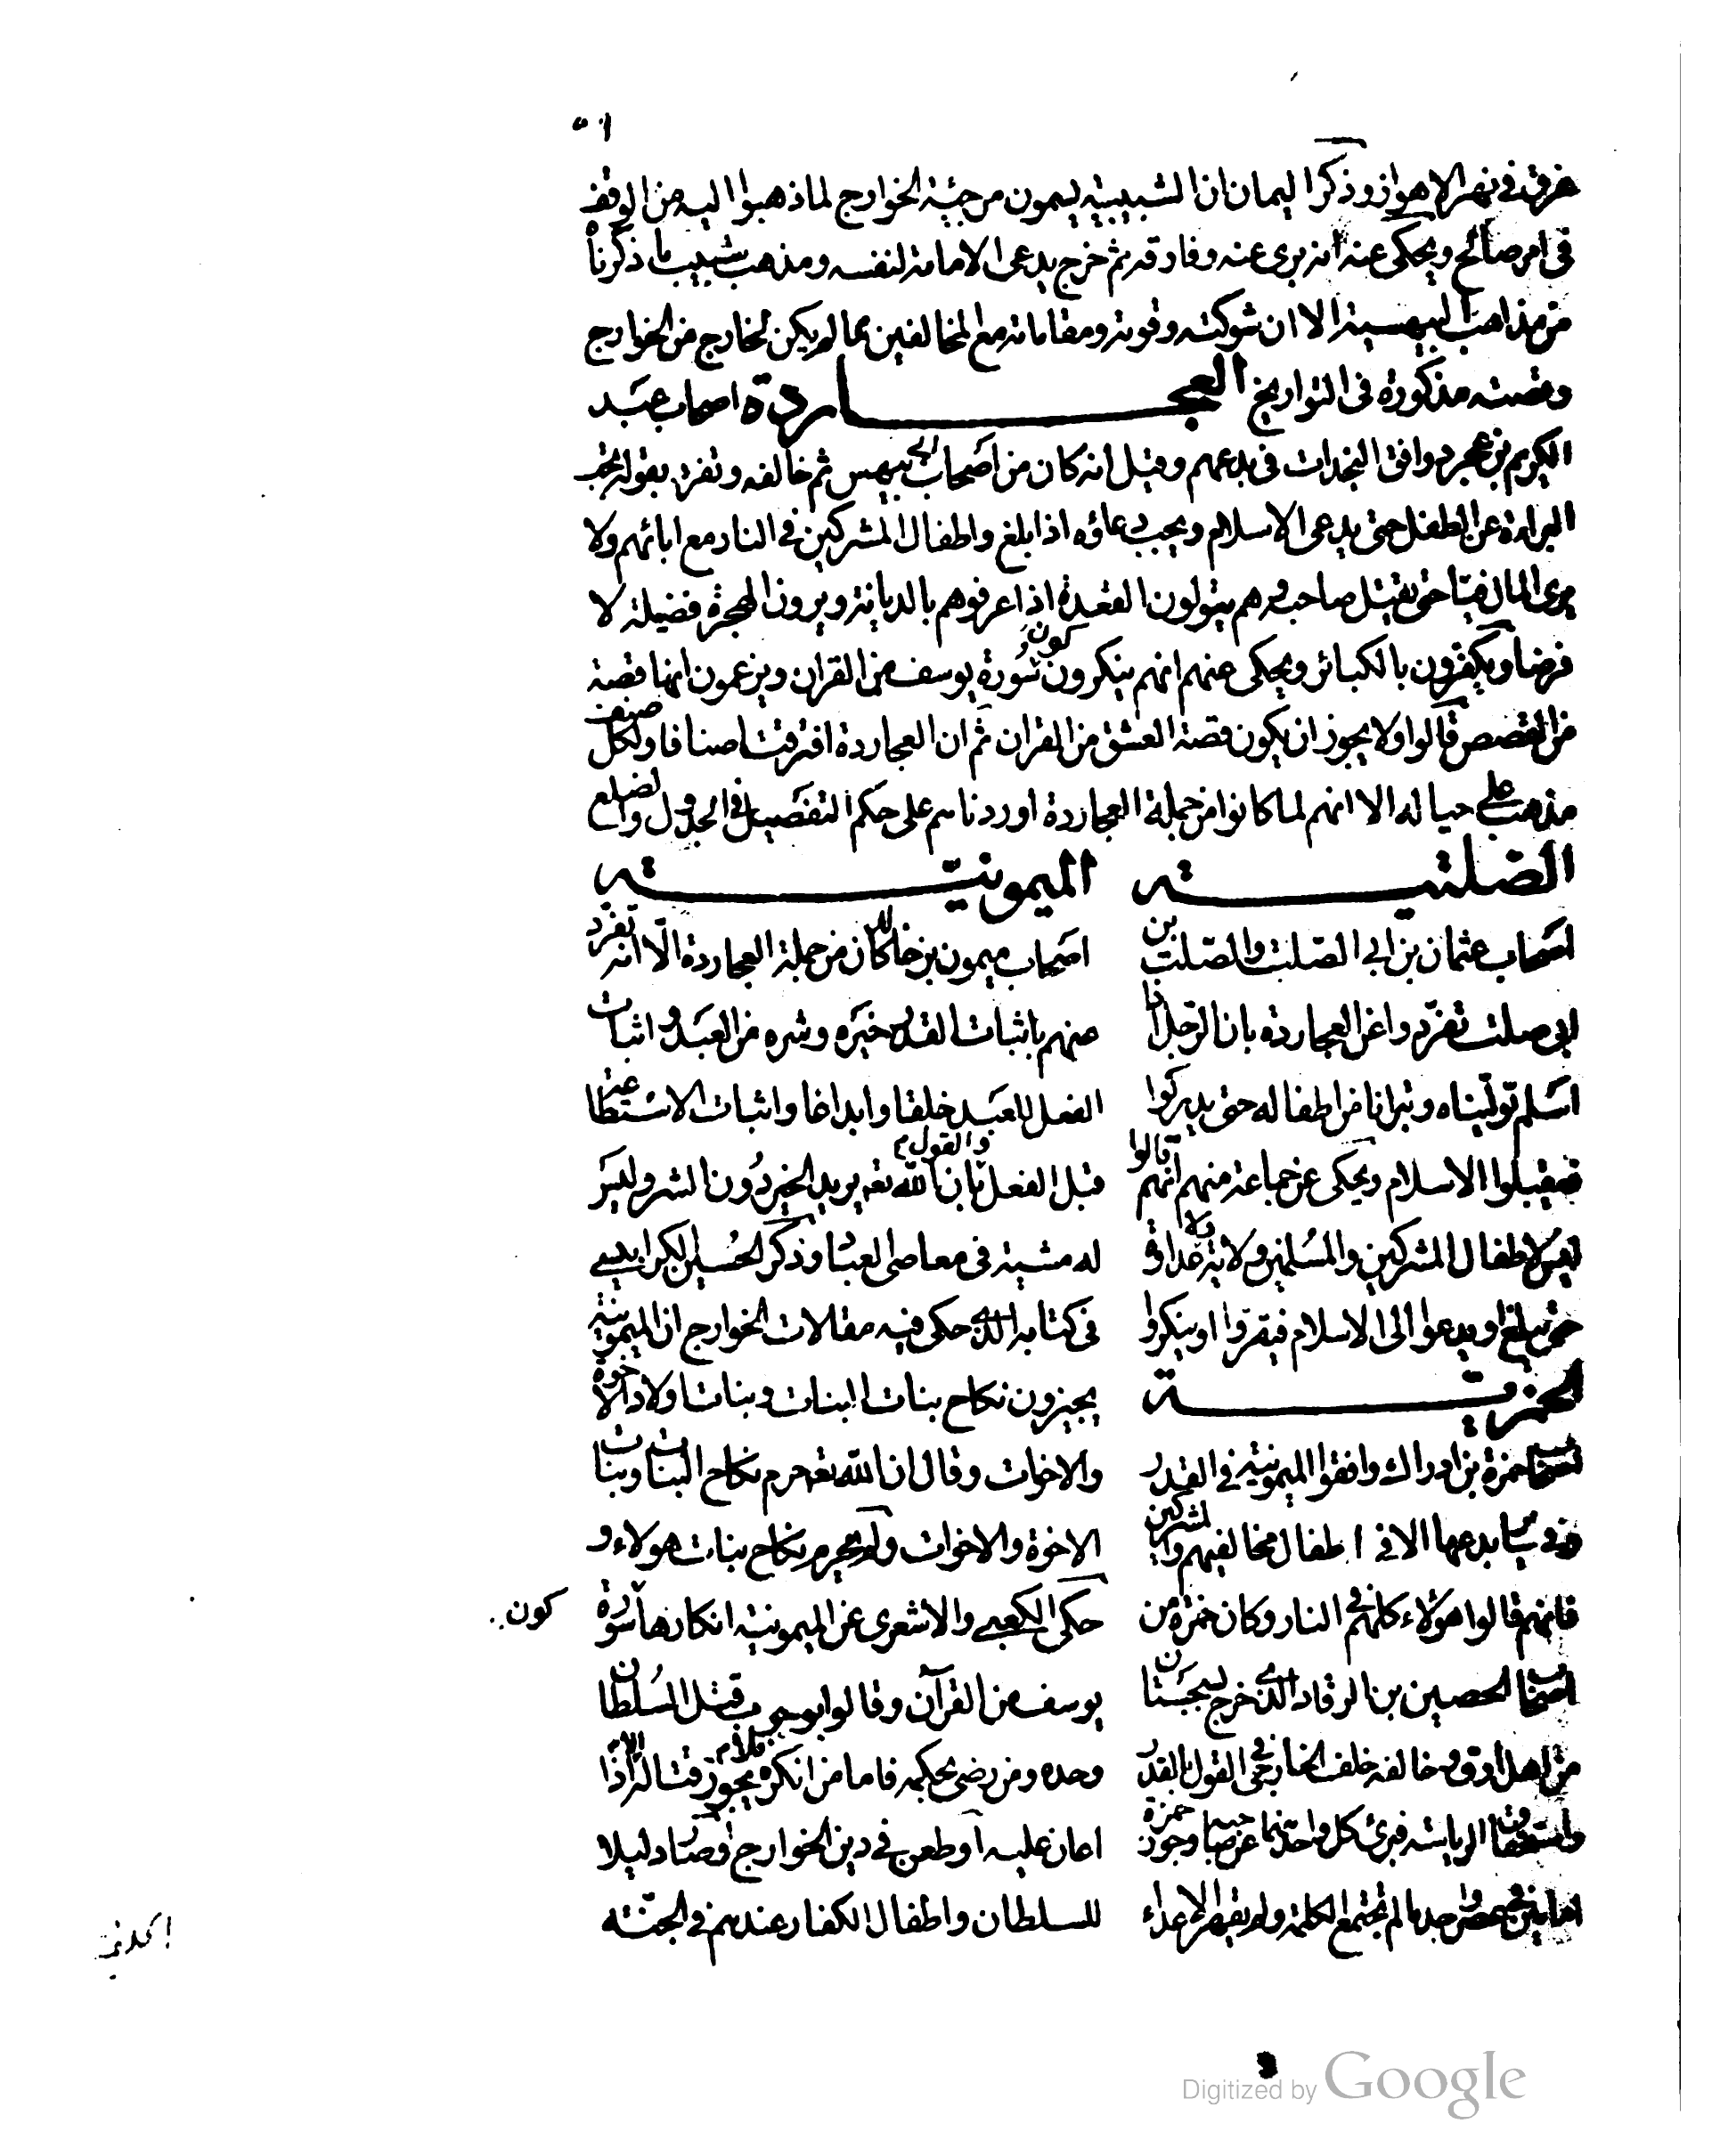 ٥١
غرق في نهر الاهواز وذكر اليمان ان الشبيبية يسمون مرجئة الخوارج لما ذهبوا اليه من الوقف
في امر صالح ويحكى عنه انه برى عنه وفارقه ثم خرج يدعى الامامة لنفسه ومذهب شبيب ما ذكرناه
من مذاهب البيهسية الا ان شوكته وقوته ومقاماته مع المخالفين مما لم يكن لخارج من الخوارج
وقصته مذكورة في التواريخ العجاردة اصحاب عبد
الكريم بن عجرد وافق النجدات في بدعهم وقيل انه كان من اصحاب ابي بيهس ثم خالفه وتفرد بقوله تجب
البراءة عن الطفل حتى يدعى الاسلام ويجب دعاؤه اذا بلغ واطفال المشركين في النار مع ابائهم ولا
يرى المال فيئا حتى يقتل صاحبه وهم يتولون القعدة اذا عرفوهم بالديانة ويرون الهجرة فضيلة لا
فرضا ويكفرون بالكبائر ويحكى عنهم انهم ينكرون كون سورة يوسف من القران ويزعمون انها قصة
من القصص قالوا ولا يجوز ان يكون قصة العشق من القران ثم ان العجاردة افترقت اصنافا ولكل صنف
مذهب على حياله الا انهم لما كانوا من جملة العجاردة اوردناهم على حكم التفصيل في الجدول والضلع
الصلتية
اصحاب عثمان بن ابي الصلت والصلت بن
ابي صلت تفردوا عن العجاردة بان الرجل اذا
اسلم توليناه وتبرانا من اطفاله حتى يدركوا
فيقبلوا الاسلام ويحكى عن جماعة منهم انهم قالوا
ليس لاطفال المشركين والمسلمين ولاية ولا عداوة
حتى يبلغوا ويدعوا الى الاسلام فيقروا او ينكروا
الحمزية
اصحاب حمزة بن ادراك وافقوا الميمونية في القدر
وفي سائر بدعها الا في اطفال مخالفيهم والمشركين
فانهم قالوا هؤلاء كلهم في النار وكان حمزة من
اصحاب الحصين بن الرقاد الذي خرج بسجستان
من اهل اوق وخالفه خلف الخارجي في القول بالقدر
واستحقاق الرياسة فبرئ كل واحد منهما عن صاحبه وجوز حمزة
امامين في عصر واحد ما لم تجتمع الكلمة ولم يقهر الاعداء
الميمونية
اصحاب ميمون بن خالد كان من جملة العجاردة الا انه تفرد
عنهم باثبات القدر خيره وشره من العبد واثبات
الفعل للعبد خلقا وابداعا واثبات الاستطاعة
قبل الفعل والقول بان الله تعه يريد الخير دون الشر وليس
له مشية في معاصى العباد وذكر الحسين الكرابيسي
في كتابه الذي حكى فيه مقالات الخوارج ان الميمونية
يجيزون نكاح بنات البنات وبنات اولاد الاخوة
والاخوات وقال ان الله تعه حرم نكاح البنات وبنات
الاخوة والاخوات ولم يحرم نكاح بنات هولاء و
حكى الكعبي والاشعرى عن الميمونية انكارها سورة
كون
يوسف من القرآن وقالوا بوجوب قتل السلطان
وحده ومن رضى بحكمه فاما من انكره فلا يجوز قتاله الا اذا
اعان عليه او طعن في دين الخوارج او صار دليلا
للسلطان واطفال الكفار عندهم في الجنة
Digitized by Google